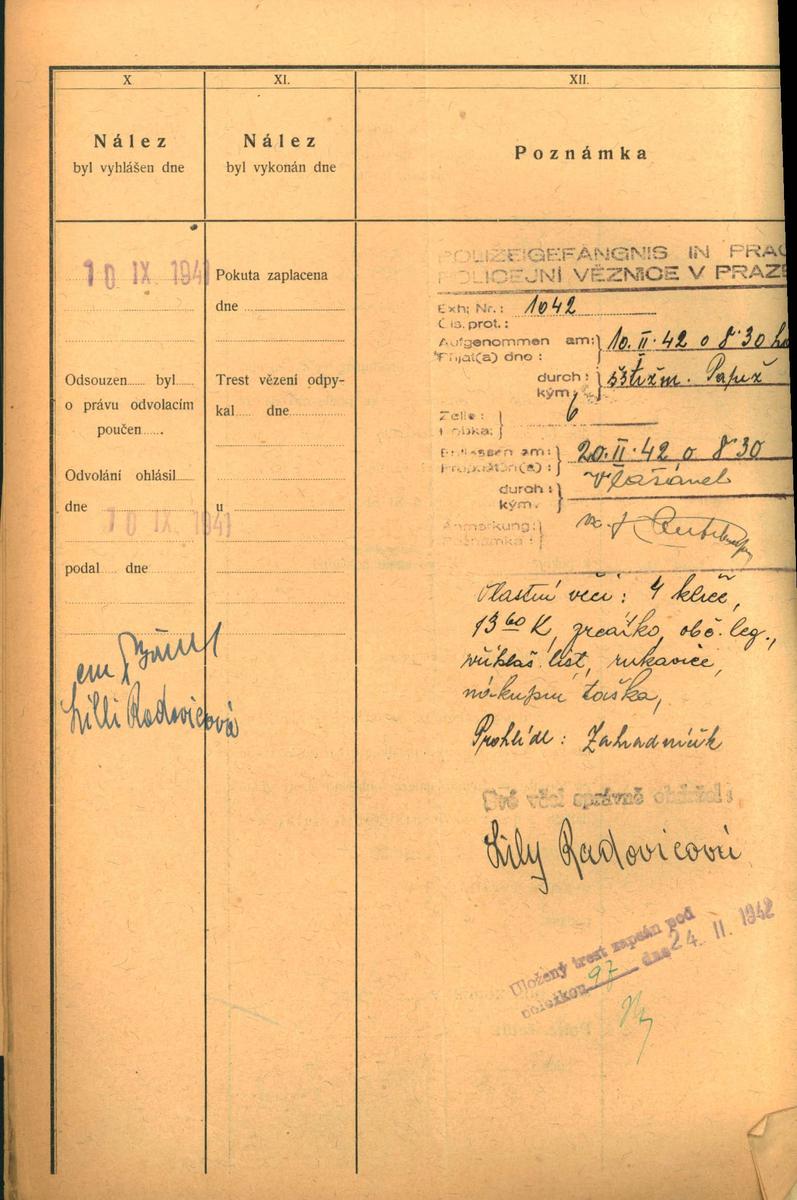 X
Nález
byl vyhlášen dne
10 IX 1941
Odsouzen byl
o právu odvolacím
poučen
Odvolání ohlásil
dne 10 IX 1941
podal dne
Lilli Radovicová
XI.
Nález
byl vykonán dne
Pokuta zaplacena
dne
Trest vězení odpy-
kal dne
u
XII.
Poznámka
POLIZEIGEFÄNGNIS IN PRAG
POLICEJNÍ VĚZNICE V PRAZE
Exh: Nr.: 1042
Čís. prot.:
Aufgenommen am: 10. II. 42 o 8 30
Přijat(a) dne:
durch:
kým:
Zelle: 6
Kobka:
Entlassen am: 20. II. 42 o 8 30
Propuštěn(a):
durch:
kým:
Anmerkung:
Poznámka:
Vlastní věci: 4 klíče,
13 60 K, zrcátko, obč. leg.,
přihláš. list, rukavice,
nákupní taška,
Prohlídl: Zahradníčk
Své věci správně obdržel:
Lily Radovicová
Uložený trest zapsán pod
položkou 97 dne 24. II. 1942